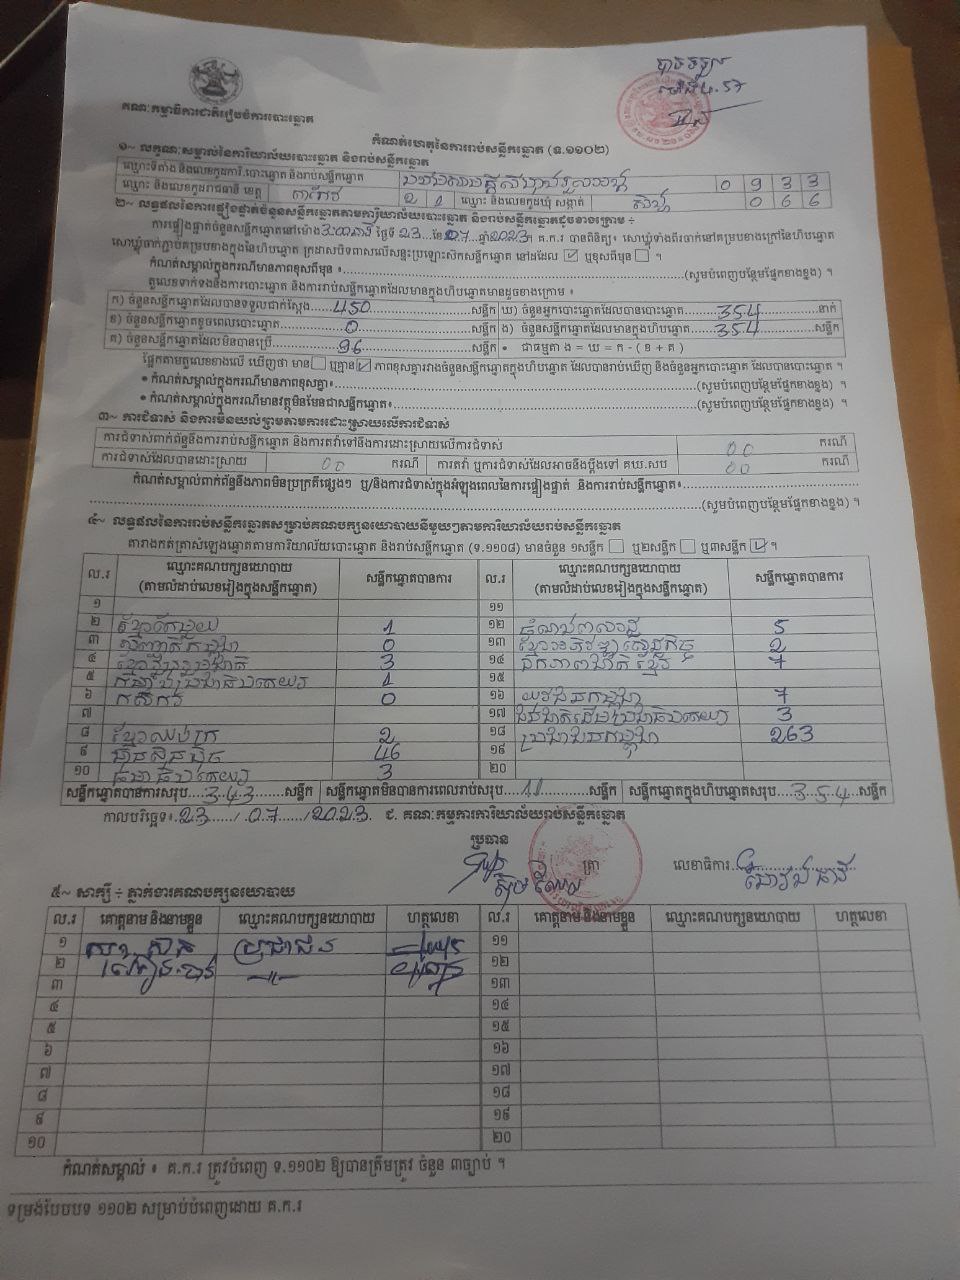 គណៈកម្មាធិការជាតិរៀបចំការបោះឆ្នោត
កំណត់ហេតុនៃការរាប់សន្លឹកឆ្នោត (ទ.១១០២)
១~ លក្ខណៈសម្គាល់នៃការិយាល័យបោះឆ្នោត និងរាប់សន្លឹកឆ្នោត
ឈ្មោះទីតាំង និងលេខកូដការិ.បោះឆ្នោត និងរាប់សន្លឹកឆ្នោត 0 9 3 3
ឈ្មោះ និងលេខកូដរាជធានី ខេត្ត តាកែវ 2 1 ឈ្មោះ និងលេខកូដឃុំ សង្កាត់ 0 6 6
២~ លទ្ធផលនៃការផ្ទៀងផ្ទាត់ចំនួនសន្លឹកឆ្នោតតាមការិយាល័យបោះឆ្នោត និងរាប់សន្លឹកឆ្នោតដូចខាងក្រោម ÷
ការផ្ទៀងផ្ទាត់ចំនួនសន្លឹកឆ្នោតនៅម៉ោង ថ្ងៃទី 23 ខែ 07 ឆ្នាំ 2023 ។ គ.ក.រ បានពិនិត្យ៖ សោឃ្លុំទាំងពីរចាក់នៅគម្របខាងក្រៅនៃហិបឆ្នោត
សោឃ្លុំចាក់ភ្ជាប់គម្របខាងក្នុងនៃហិបឆ្នោត ក្រដាសបិទពាសលើសន្ទះប្រឡោះស៊កសន្លឹកឆ្នោត នៅដដែល ☑ ឬខុសពីមុន ☐ ។
កំណត់សម្គាល់ក្នុងករណីមានភាពខុសពីមុន ៖ (សូមបំពេញបន្ថែមផ្នែកខាងខ្នង) ។
តួលេខទាក់ទងនឹងការបោះឆ្នោត និងការរាប់សន្លឹកឆ្នោតដែលមានក្នុងហិបឆ្នោតមានដូចខាងក្រោម ៖
ក) ចំនួនសន្លឹកឆ្នោតដែលបានទទួលជាក់ស្តែង 450 សន្លឹក ឃ) ចំនួនអ្នកបោះឆ្នោតដែលបានបោះឆ្នោត 354 នាក់
ខ) ចំនួនសន្លឹកឆ្នោតខូចពេលបោះឆ្នោត 0 សន្លឹក ង) ចំនួនសន្លឹកឆ្នោតដែលមានក្នុងហិបឆ្នោត 354 សន្លឹក
គ) ចំនួនសន្លឹកឆ្នោតដែលមិនបានប្រើ 96 សន្លឹក • ជាធម្មតា ង = ឃ = ក - ( ខ + គ )
ផ្អែកតាមតួលេខខាងលើ ឃើញថា មាន ☐ ឬគ្មាន ☑ ភាពខុសគ្នារវាងចំនួនសន្លឹកឆ្នោតក្នុងហិបឆ្នោត ដែលបានរាប់ឃើញ និងចំនួនអ្នកបោះឆ្នោត ដែលបានបោះឆ្នោត ។
• កំណត់សម្គាល់ក្នុងករណីមានភាពខុសគ្នា៖ (សូមបំពេញបន្ថែមផ្នែកខាងខ្នង) ។
• កំណត់សម្គាល់ក្នុងករណីមានវត្ថុមិនមែនជាសន្លឹកឆ្នោត៖ (សូមបំពេញបន្ថែមផ្នែកខាងខ្នង) ។
៣~ ការជំទាស់ និងការមិនយល់ព្រមតាមការដោះស្រាយលើការជំទាស់
ការជំទាស់ពាក់ព័ន្ធនឹងការរាប់សន្លឹកឆ្នោត និងការតវ៉ាទៅនឹងការដោះស្រាយលើការជំទាស់ 00 ករណី
ការជំទាស់ដែលបានដោះស្រាយ 00 ករណី ការតវ៉ា ឬការជំទាស់ដែលអាចនឹងប្តឹងទៅ គឃ.សប 00 ករណី
កំណត់សម្គាល់ពាក់ព័ន្ធនឹងភាពមិនប្រក្រតីផ្សេងៗ ឬ/និងការជំទាស់ក្នុងអំឡុងពេលនៃការផ្ទៀងផ្ទាត់ និងការរាប់សន្លឹកឆ្នោត៖
(សូមបំពេញបន្ថែមផ្នែកខាងខ្នង) ។
៤~ លទ្ធផលនៃការរាប់សន្លឹកឆ្នោតសម្រាប់គណបក្សនយោបាយនីមួយៗតាមការិយាល័យរាប់សន្លឹកឆ្នោត
តារាងកត់ត្រាសំឡេងឆ្នោតតាមការិយាល័យបោះឆ្នោត និងរាប់សន្លឹកឆ្នោត (ទ.១១០៨) មានចំនួន ១សន្លឹក ☐ ឬ២សន្លឹក ☐ ឬ៣សន្លឹក ☑ ។
ល.រ ឈ្មោះគណបក្សនយោបាយ សន្លឹកឆ្នោតបានការ ល.រ ឈ្មោះគណបក្សនយោបាយ សន្លឹកឆ្នោតបានការ
(តាមលំដាប់លេខរៀងក្នុងសន្លឹកឆ្នោត) (តាមលំដាប់លេខរៀងក្នុងសន្លឹកឆ្នោត)
១ ១១
២ ខ្មែរតែមួយ 1 ១២ 5
៣ សញ្ជាតិកម្ពុជា 0 ១៣ ខ្មែរអភិវឌ្ឍសេដ្ឋកិច្ច 2
៤ 3 ១៤ ឯកភាពជាតិខ្មែរ 7
៥ កម្លាំងប្រជាធិបតេយ្យ 1 ១៥
៦ កសិករ 0 ១៦ យុវជនកម្ពុជា 7
៧ ១៧ ដើម្បីប្រជាធិបតេយ្យ 3
៨ ខ្មែរឈប់ក្រ 2 ១៨ ប្រជាជនកម្ពុជា 263
៩ ហ្វ៊ុនស៊ិនប៉ិច 46 ១៩
១០ ធម្មាធិបតេយ្យ 3 ២០
សន្លឹកឆ្នោតបានការសរុប 343 សន្លឹក សន្លឹកឆ្នោតមិនបានការពេលរាប់សរុប 11 សន្លឹក សន្លឹកឆ្នោតក្នុងហិបឆ្នោតសរុប 354 សន្លឹក
កាលបរិច្ឆេទ៖ 23 / 07 / 2023 ជ. គណៈកម្មការការិយាល័យរាប់សន្លឹកឆ្នោត
ប្រធាន
ត្រា លេខាធិការ
៥~ សាក្សី ÷ ភ្នាក់ងារគណបក្សនយោបាយ
ល.រ គោត្តនាម និងនាមខ្លួន ឈ្មោះគណបក្សនយោបាយ ហត្ថលេខា ល.រ គោត្តនាម និងនាមខ្លួន ឈ្មោះគណបក្សនយោបាយ ហត្ថលេខា
១ ប្រជាជន ១១
២ ១២
៣ ១៣
៤ ១៤
៥ ១៥
៦ ១៦
៧ ១៧
៨ ១៨
៩ ១៩
១០ ២០
កំណត់សម្គាល់ ៖ គ.ក.រ ត្រូវបំពេញ ទ.១១០២ ឱ្យបានត្រឹមត្រូវ ចំនួន ៣ច្បាប់ ។
ទម្រង់បែបបទ ១១០២ សម្រាប់បំពេញដោយ គ.ក.រ